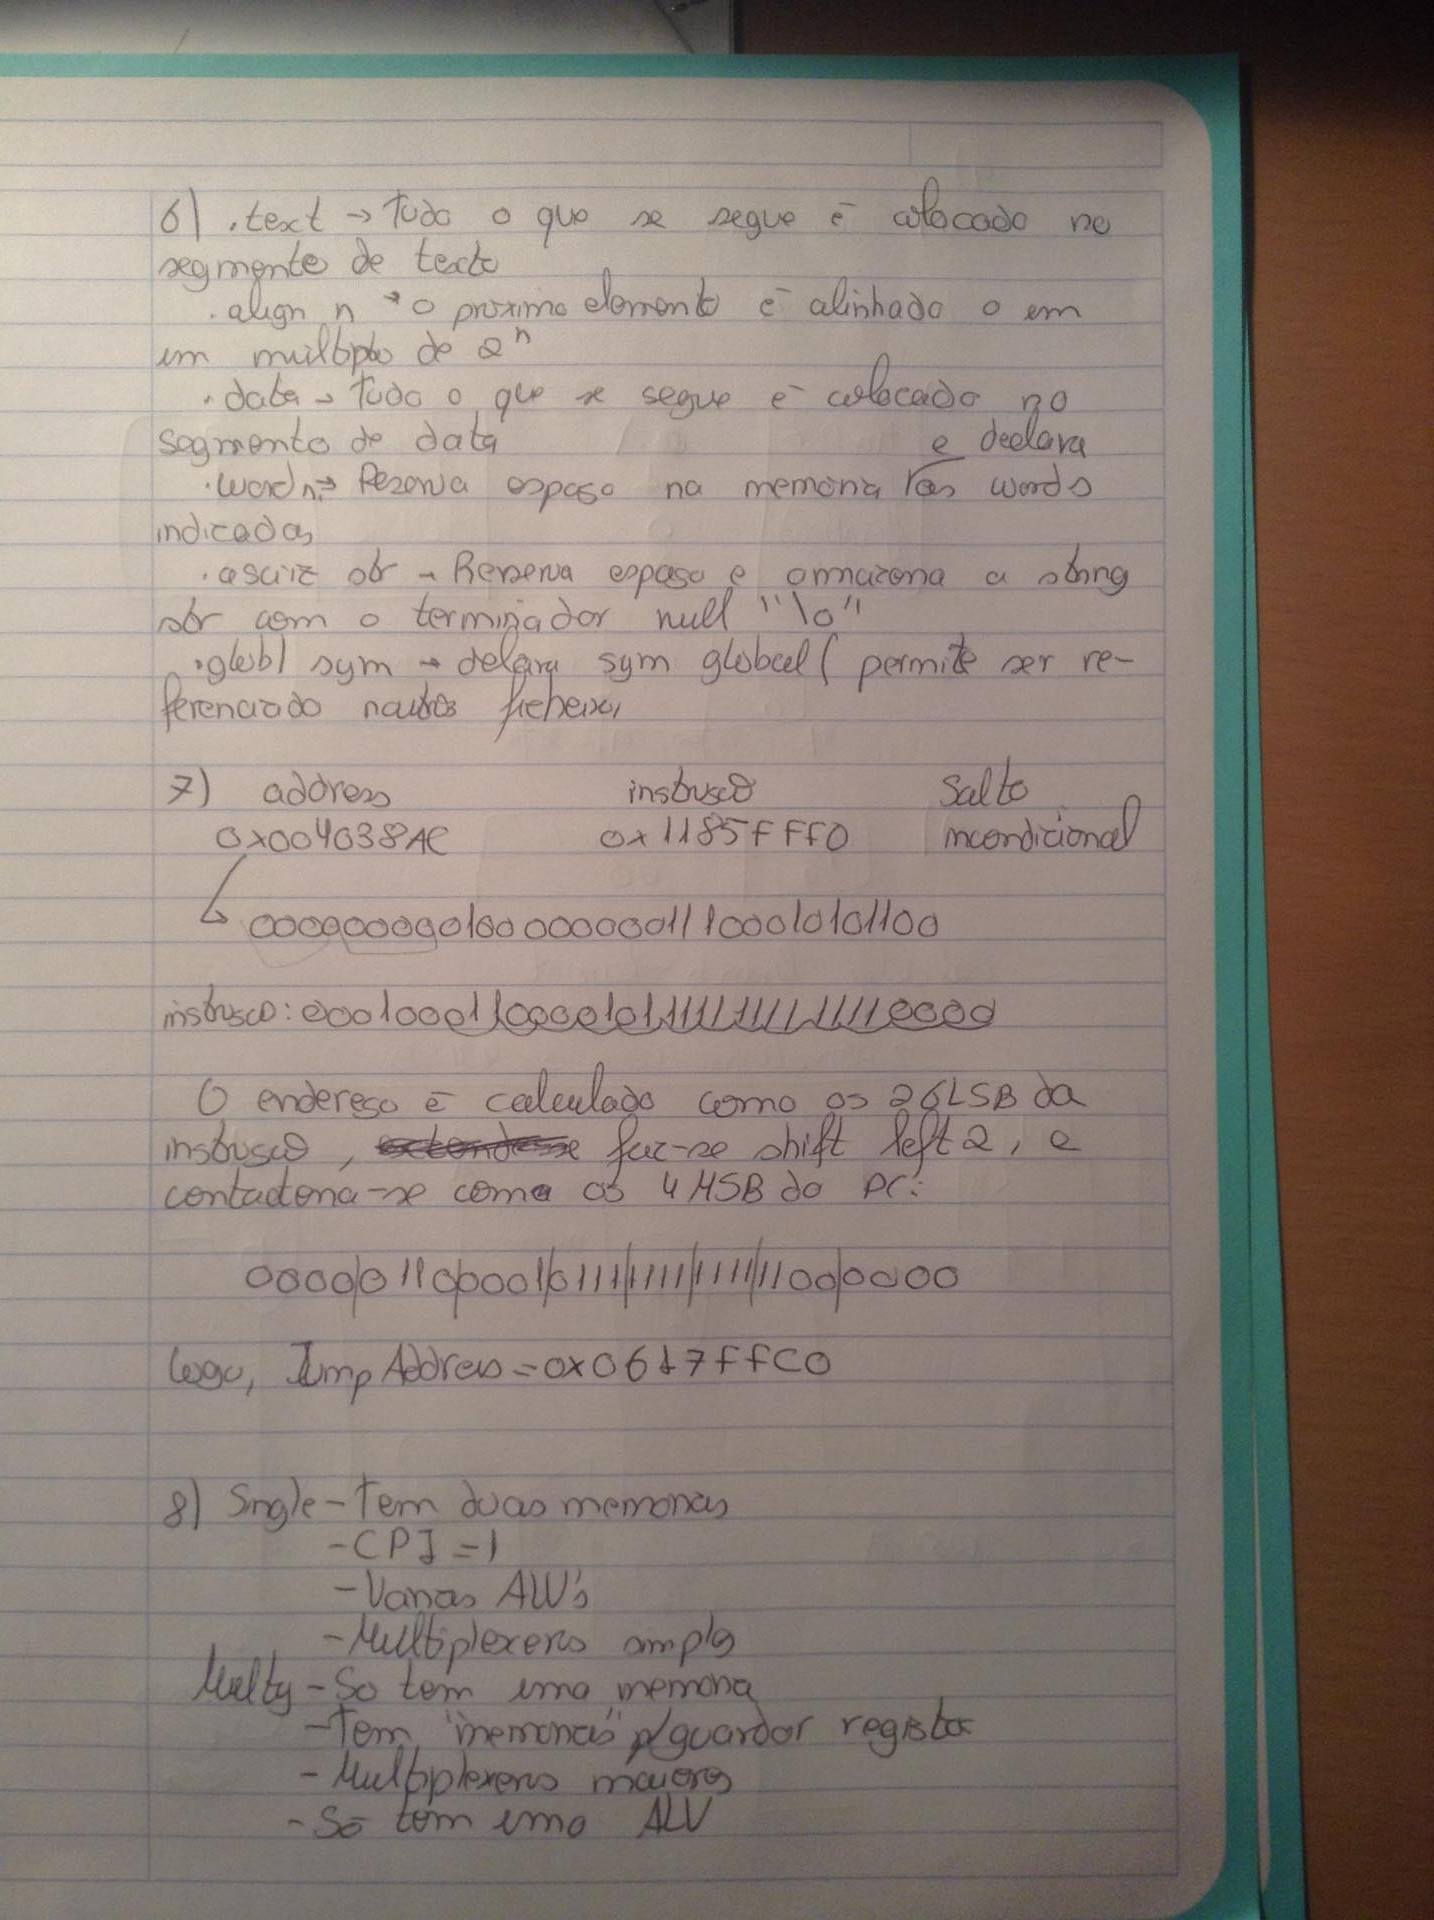 6) .text → Tudo o que se segue é colocado no
segmento de texto
.align n → o proximo elemento é alinhado o em
um multiplo de 2ⁿ
.data → Tudo o que se segue é colocado no
segmento de data
e declara
.word n: → Reserva espaso na memoria as words
indicadas
.asciiz str → Reserva espaso e armazena a string
str com o terminador null "\0"
.globl sym → delara sym global ( permite ser re-
ferenciado noutros ficheiros
7) address instrusão Salto
0x004038AC 0x1185FFF0 incondicional
00000000010000000011100010101100
instrusão: 00010001100001011111111111110000
O endereso é calculado como os 26LSB da
instrusão, faz-se shift left 2, e
contactena-se coma os 4 MSB do PC:
0000|0110|0001|0111|1111|1111|1100|0000
Logo, Jump Address = 0x0617FFC0
8) Single - Tem duas memorias
- CPI = 1
- Varias ALU's
- Multiplexeres simples
Multy - So tem uma memoria
- Tem "memorias" p/guardar registos
- Multiplexeres maiores
- Só tem uma ALU